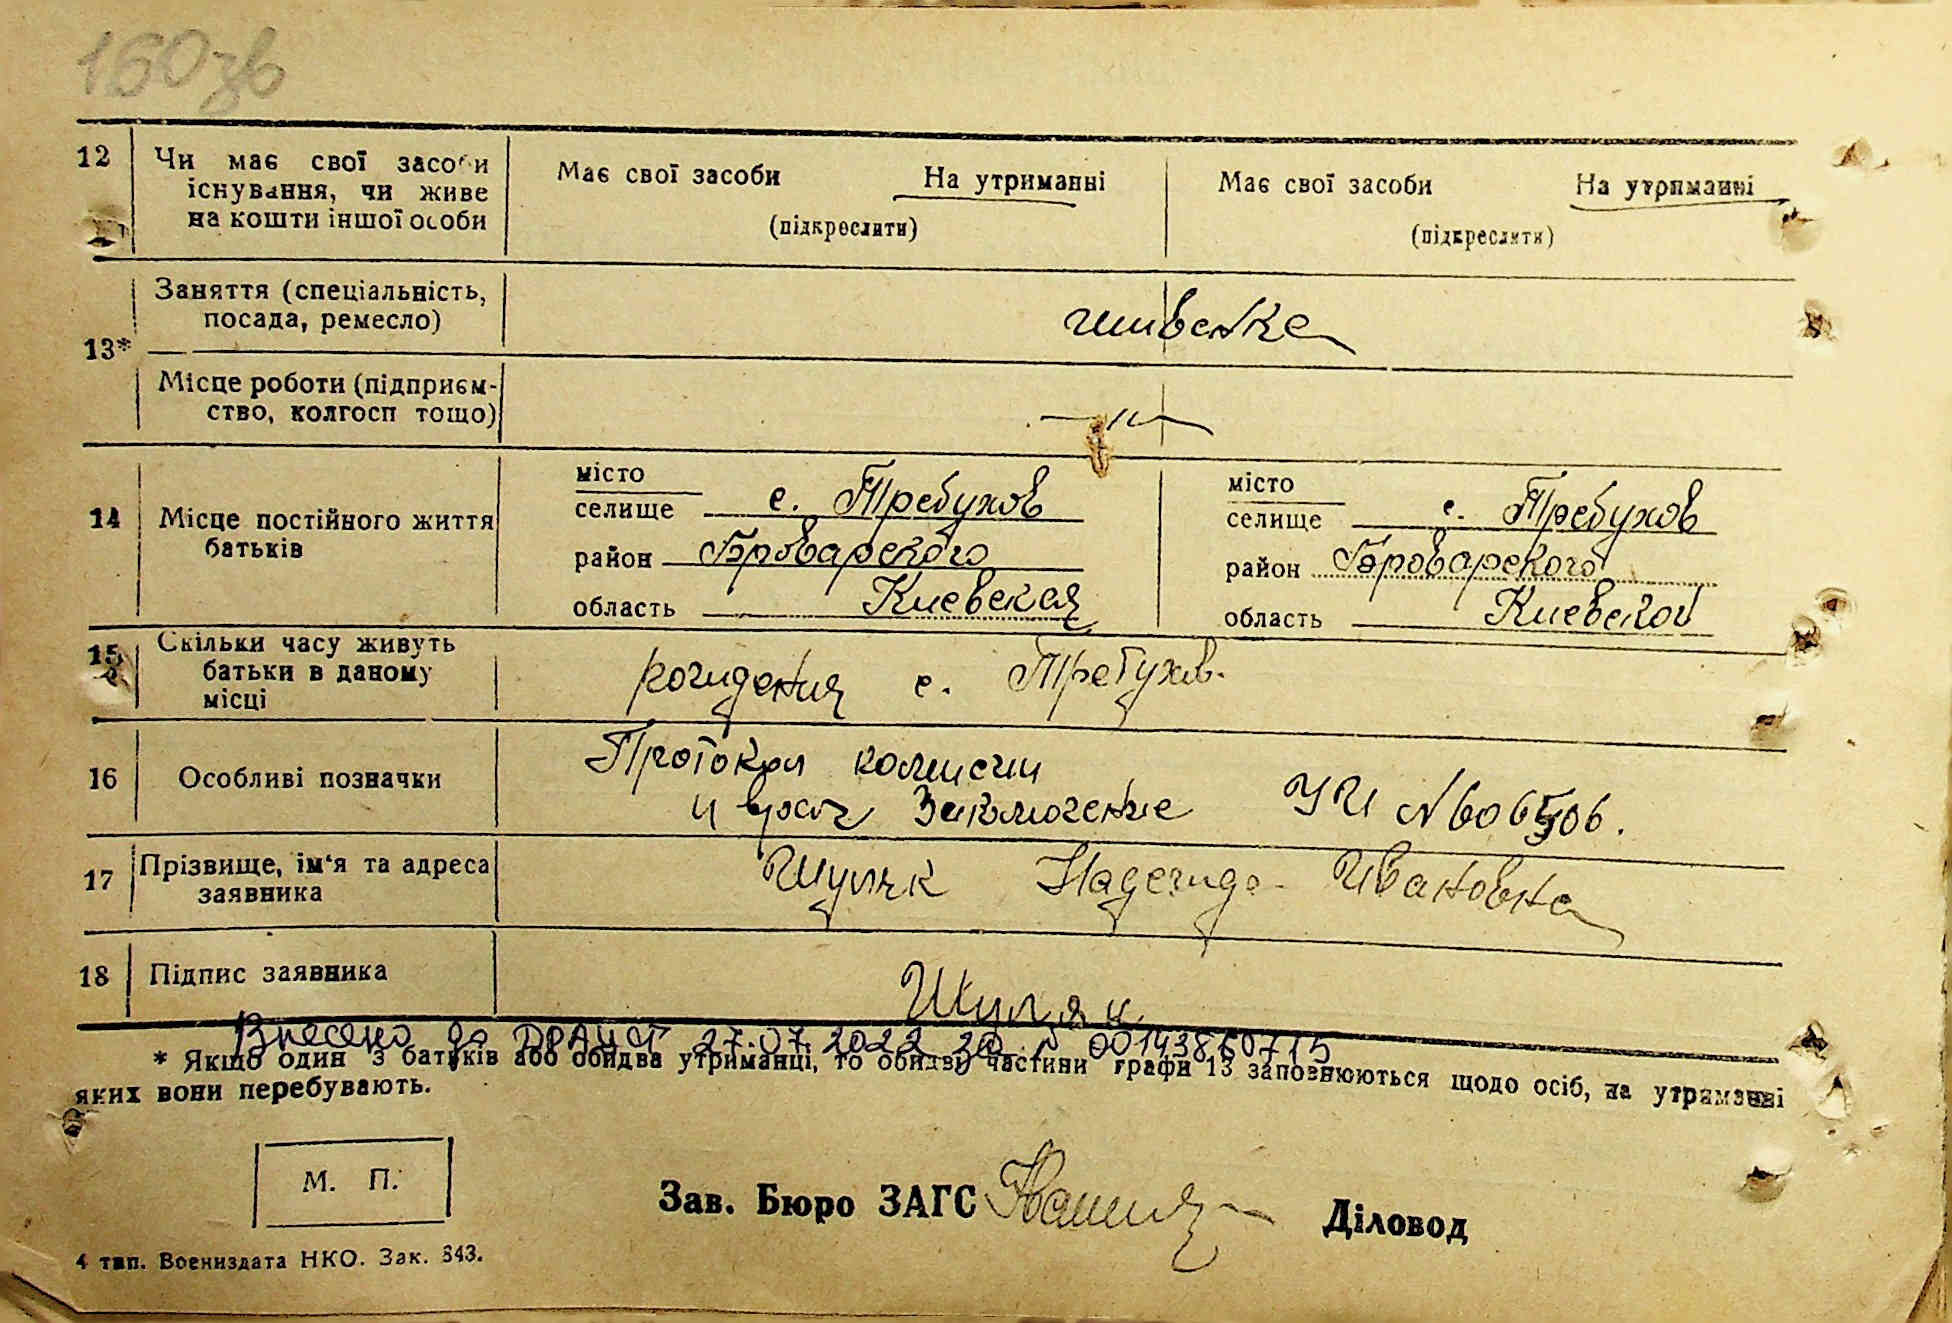 160зв
12 Чи має свої засоби Має свої засоби На утриманні Має свої засоби На утриманні
існування, чи живе
на кошти іншої особи (підкреслити) (підкреслити)
Заняття (спеціальність,
посада, ремесло) швейка
13*
Місце роботи (підприєм-
ство, колгосп тощо) —"—
місто місто
селище с. Требухов селище с. Требухов
14 Місце постійного життя
батьків
район Броварского район Броварского
область Киевская область Киевской
15 Скільки часу живуть
батьки в даному
місці рождения с. Требухів.
16 Особливі позначки Протокол комисии
и врач Заключение УИ №606506.
17 Прізвище, ім'я та адреса
заявника Шуляк Надежда Ивановна
18 Підпис заявника Шуляк
Внесено до ДРАЦСГ 27.07.2022 00143860715
* Якщо один з батьків або обидва утриманці, то обидві частини графи 13 заповнюються щодо осіб, на утриманні
яких вони перебувають.
М. П.
Зав. Бюро ЗАГС Діловод
4 тип. Воениздата НКО. Зак. 843.